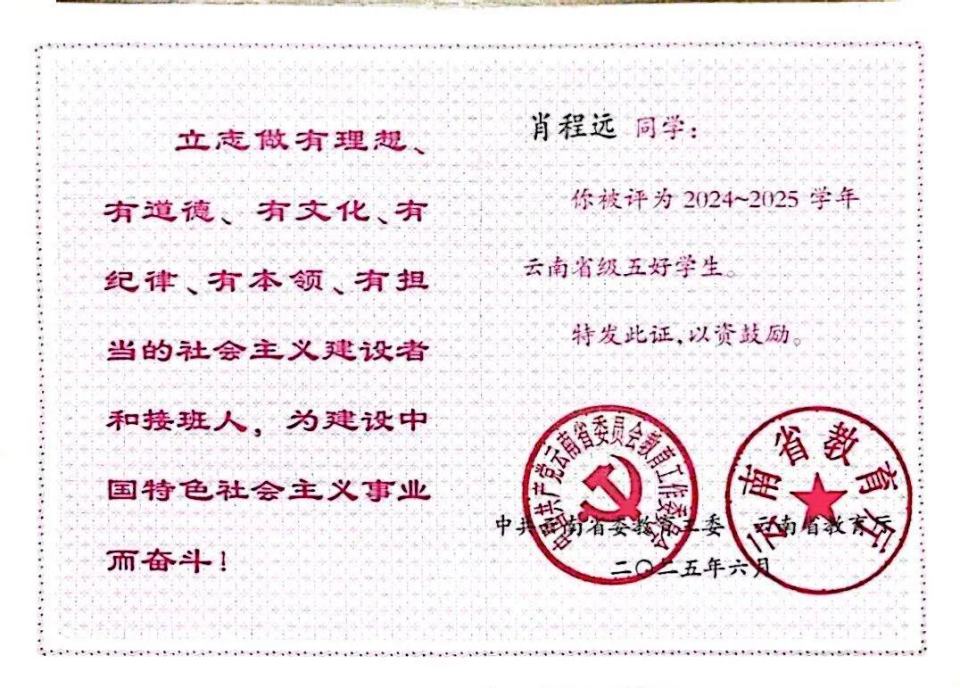 立志做有理想、
有道德、有文化、有
纪律、有本领、有担
当的社会主义建设者
和接班人，为建设中
国特色社会主义事业
而奋斗！
肖程远 同学：
你被评为 2024~2025 学年
云南省级五好学生。
特发此证，以资鼓励。
中国共产党云南省委员会教育工作委员会
云南省教育厅
中共云南省委教育工委 云南省教育厅
二〇二五年六月